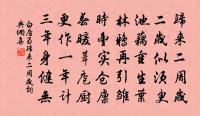 歸來二周歲
二歲似須臾
池藕重生葉
林鴉再引雛
時豐實倉廩
春暖葺庖廚
更作三年計
三年身健無
白居易歸來二周歲詞
典網書